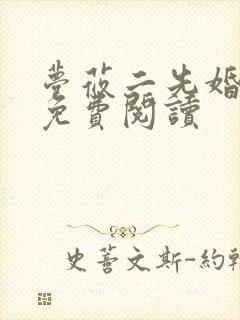 夢莜二先婚
免費閱讀
史蒂文斯-約翰